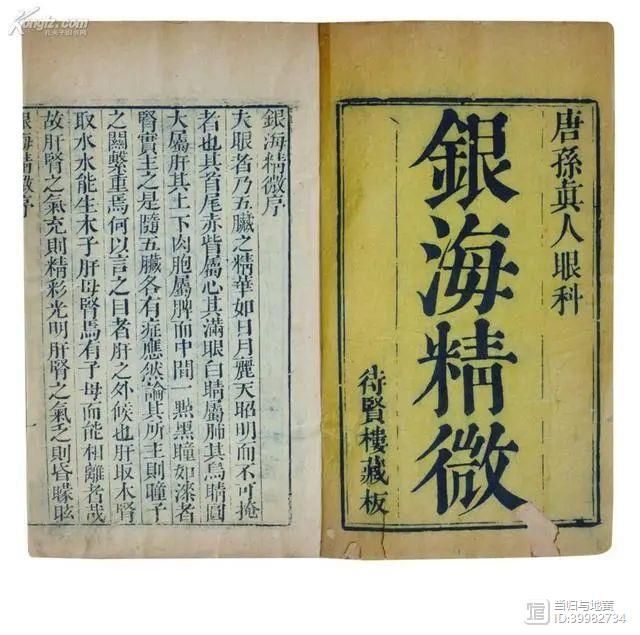 唐孫眞人眼科
銀海精微
待賢樓藏板
銀海精微序
夫眼者乃五臟之精華如日月麗天昭明而不可掩
者也其首尾赤眥屬心其滿眼白睛屬肺其烏睛圓
大屬肝其上下肉胞屬脾而中間一點黑瞳如漆者
腎實主之是隨五臟各有症應然論其所主則瞳子
之關繫重焉何以言之目者肝之外候也肝取木腎
取水水能生木子肝母腎焉有子母而能相離者哉
故肝腎之氣充則精彩光明肝腎之氣乏則昏矇眩
銀海精微序
Kongfz.com
孔夫子旧书网
当归与地黄
ID:39982734